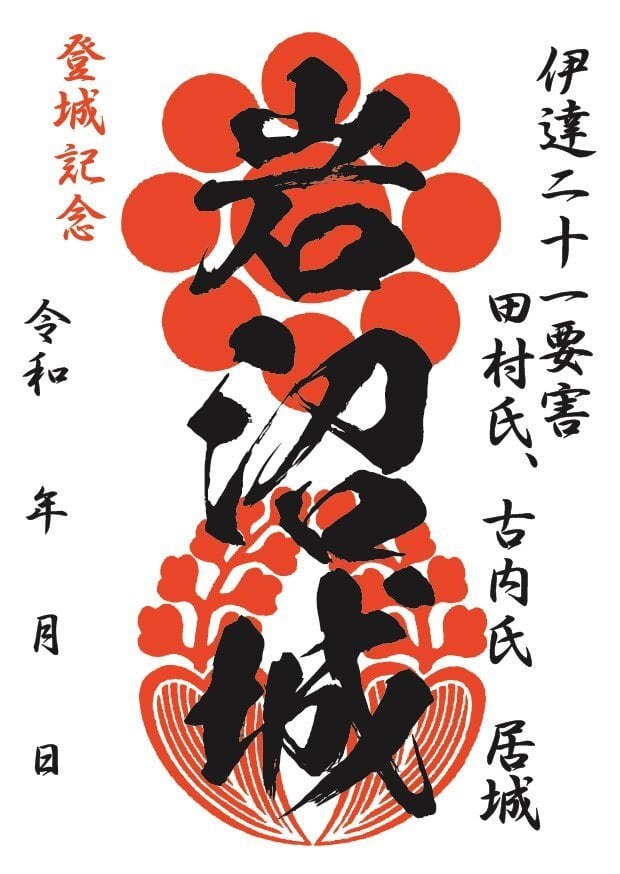 伊達二十一要害
田村氏、古内氏 居城
岩沼城
登城記念
令和 年 月 日